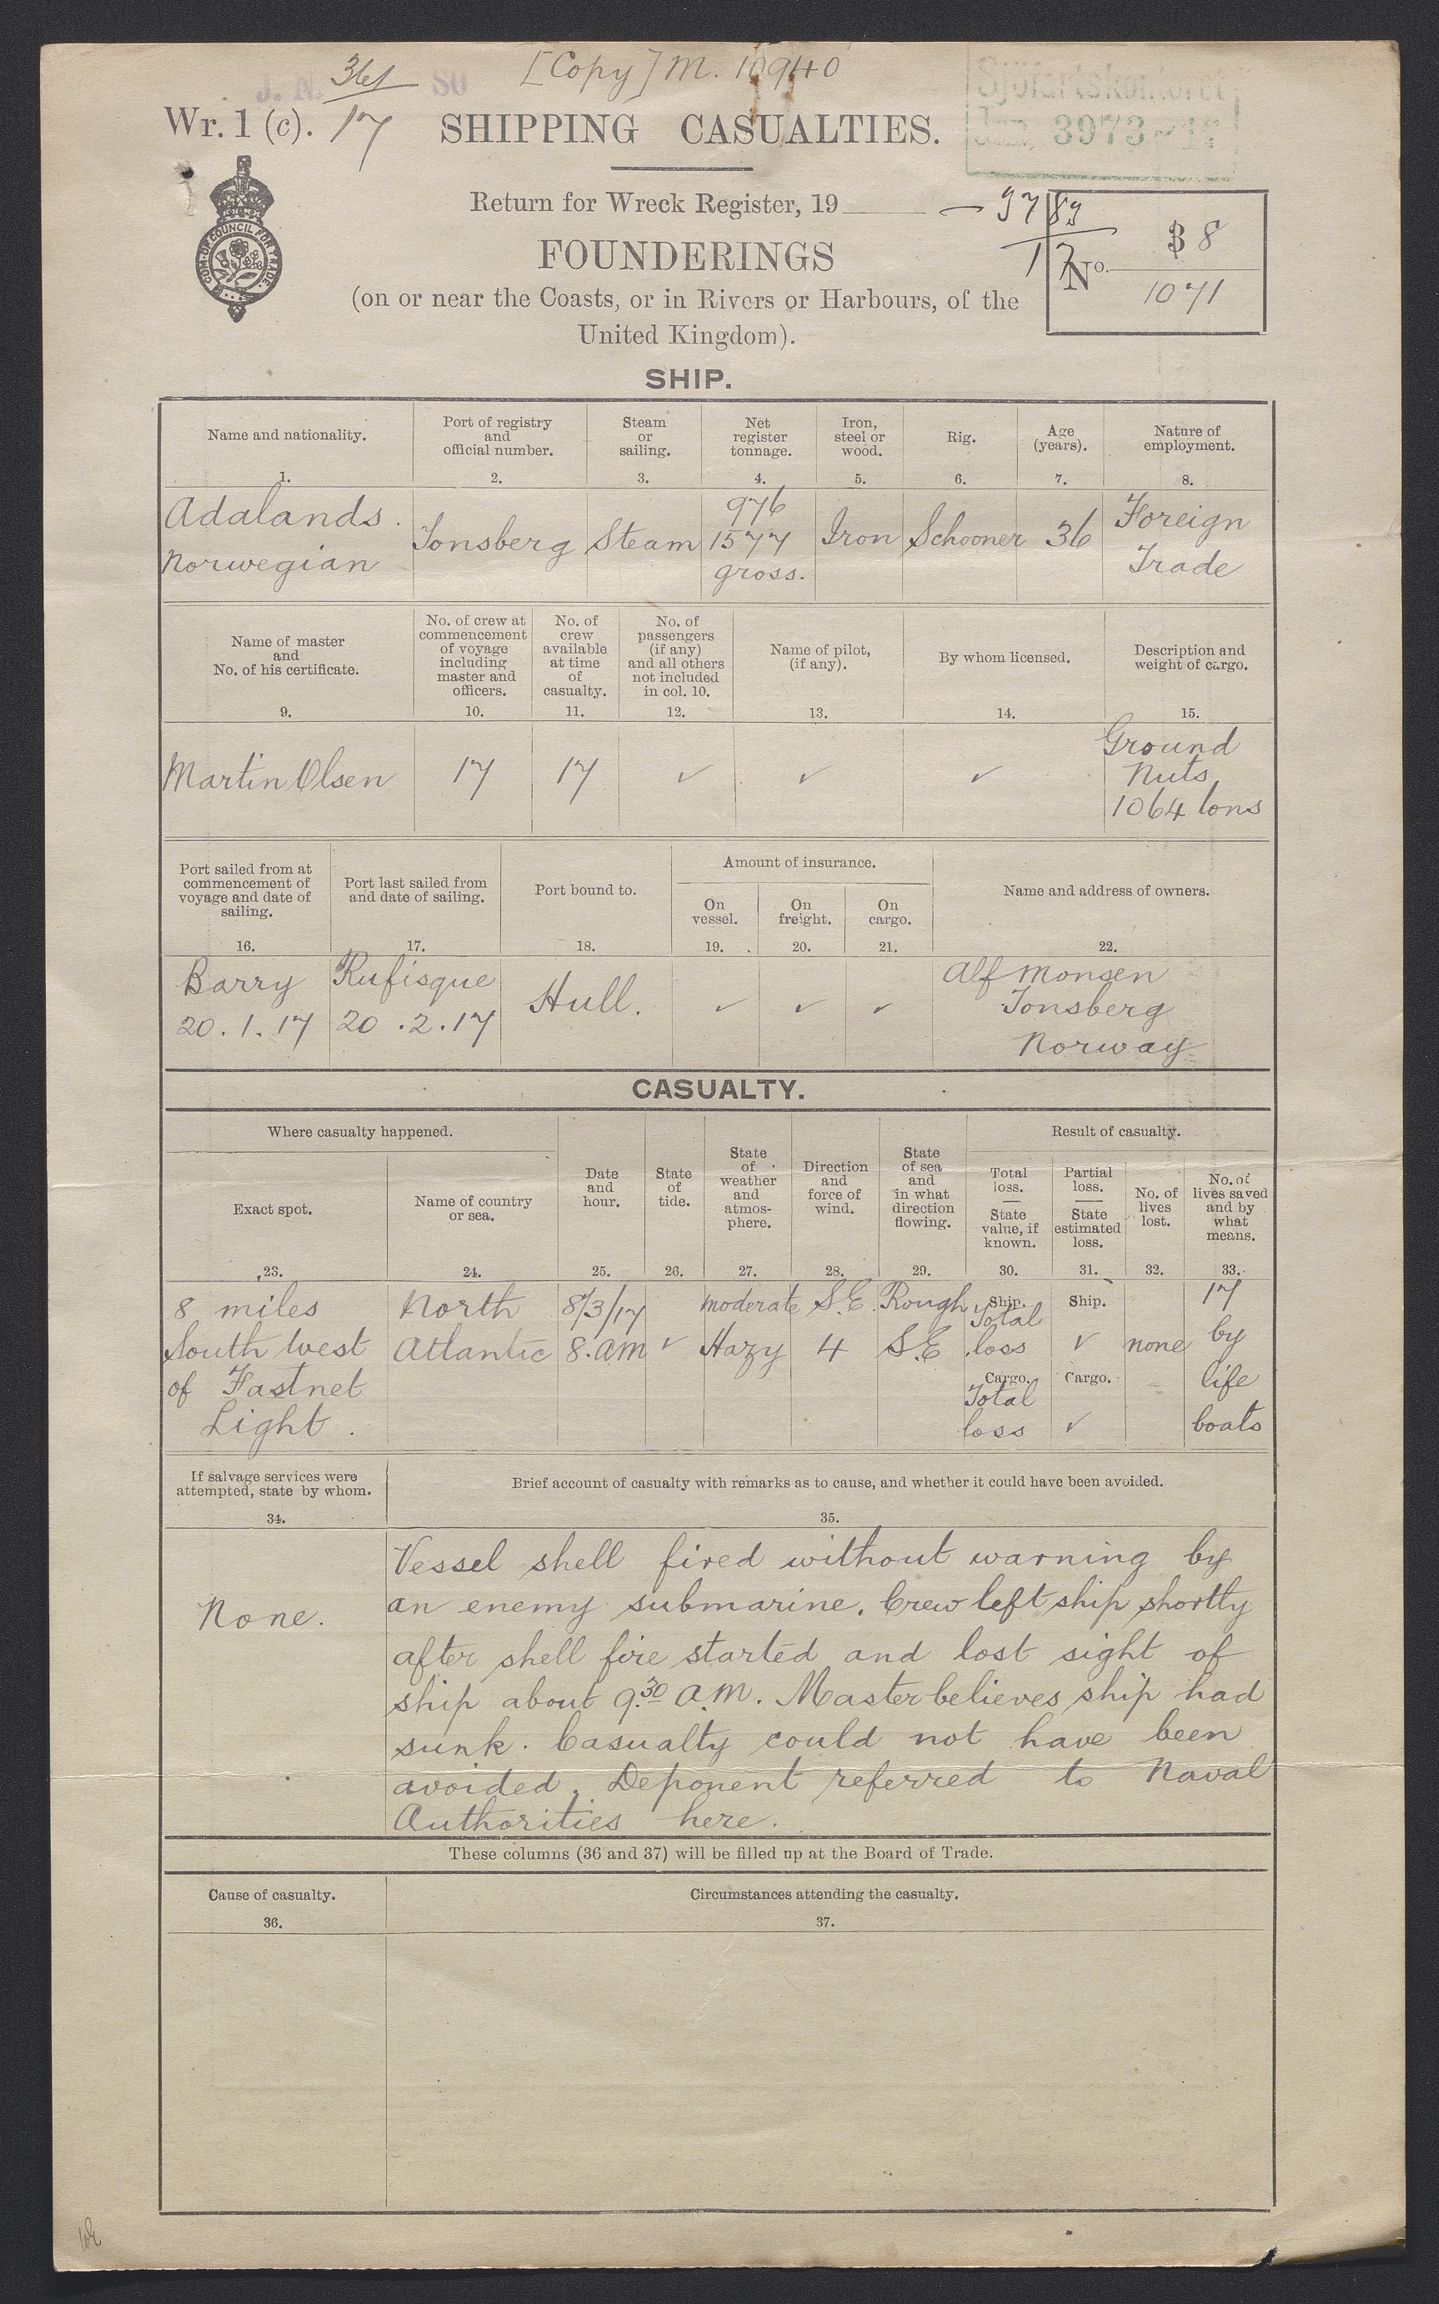 [Copy] M. 10940
J. N. 361 80
17
Sjöfartskontoret
Jnr. 3973 17
Wr. 1 (c).
SHIPPING CASUALTIES.
COM. OF COUNCIL FOR TRADE.
Return for Wreck Register, 19
17
No.
38
1071
FOUNDERINGS
(on or near the Coasts, or in Rivers or Harbours, of the
United Kingdom).
SHIP.
Name and nationality.
1.
Port of registry
and
official number.
2.
Steam
or
sailing.
3.
Net
register
tonnage.
4.
Iron,
steel or
wood.
5.
Rig.
6.
Age
(years).
7.
Nature of
employment.
8.
Adalands.
Norwegian
Tonsberg
Steam
976
1577
gross.
Iron
Schooner
36
Foreign
Trade
Name of master
and
No. of his certificate.
9.
No. of crew at
commencement
of voyage
including
master and
officers.
10.
No. of
crew
available
at time
of
casualty.
11.
No. of
passengers
(if any)
and all others
not included
in col. 10.
12.
Name of pilot,
(if any).
13.
By whom licensed.
14.
Description and
weight of cargo.
15.
Martin Olsen
17
17
✓
✓
✓
Ground
Nuts
1064 tons
Port sailed from at
commencement of
voyage and date of
sailing.
16.
Port last sailed from
and date of sailing.
17.
Port bound to.
18.
Amount of insurance.
On
vessel.
19.
On
freight.
20.
On
cargo.
21.
Name and address of owners.
22.
Barry
20.1.17
Rufisque
20.2.17
Hull.
✓
✓
✓
Alf Monsen
Tonsberg
Norway
CASUALTY.
Where casualty happened.
Exact spot.
23.
Name of country
or sea.
24.
Date
and
hour.
25.
State
of
tide.
26.
State
of
weather
and
atmos-
phere.
27.
Direction
and
force of
wind.
28.
State
of sea
and
in what
direction
flowing.
29.
Result of casualty.
Total
loss.
State
value, if
known.
30.
Partial
loss.
State
estimated
loss.
31.
No. of
lives
lost.
32.
No. of
lives saved
and by
what
means.
33.
8 miles
South West
of Fastnet
Light.
North
Atlantic
8/3/17
8. AM
✓
Moderate
Hazy
S.E.
4
Rough
S.E
Ship.
Total
loss
Cargo.
Total
loss
Ship.
✓
Cargo.
✓
none
17
by
life
boats
If salvage services were
attempted, state by whom.
34.
Brief account of casualty with remarks as to cause, and whether it could have been avoided.
35.
None.
Vessel shell fired without warning by
an enemy submarine. Crew left ship shortly
after shell fire started and lost sight of
ship about 9.30 A.M. Master believes ship had
sunk. Casualty could not have been
avoided. Deponent referred to Naval
Authorities here.
These columns (36 and 37) will be filled up at the Board of Trade.
Cause of casualty.
36.
Circumstances attending the casualty.
37.